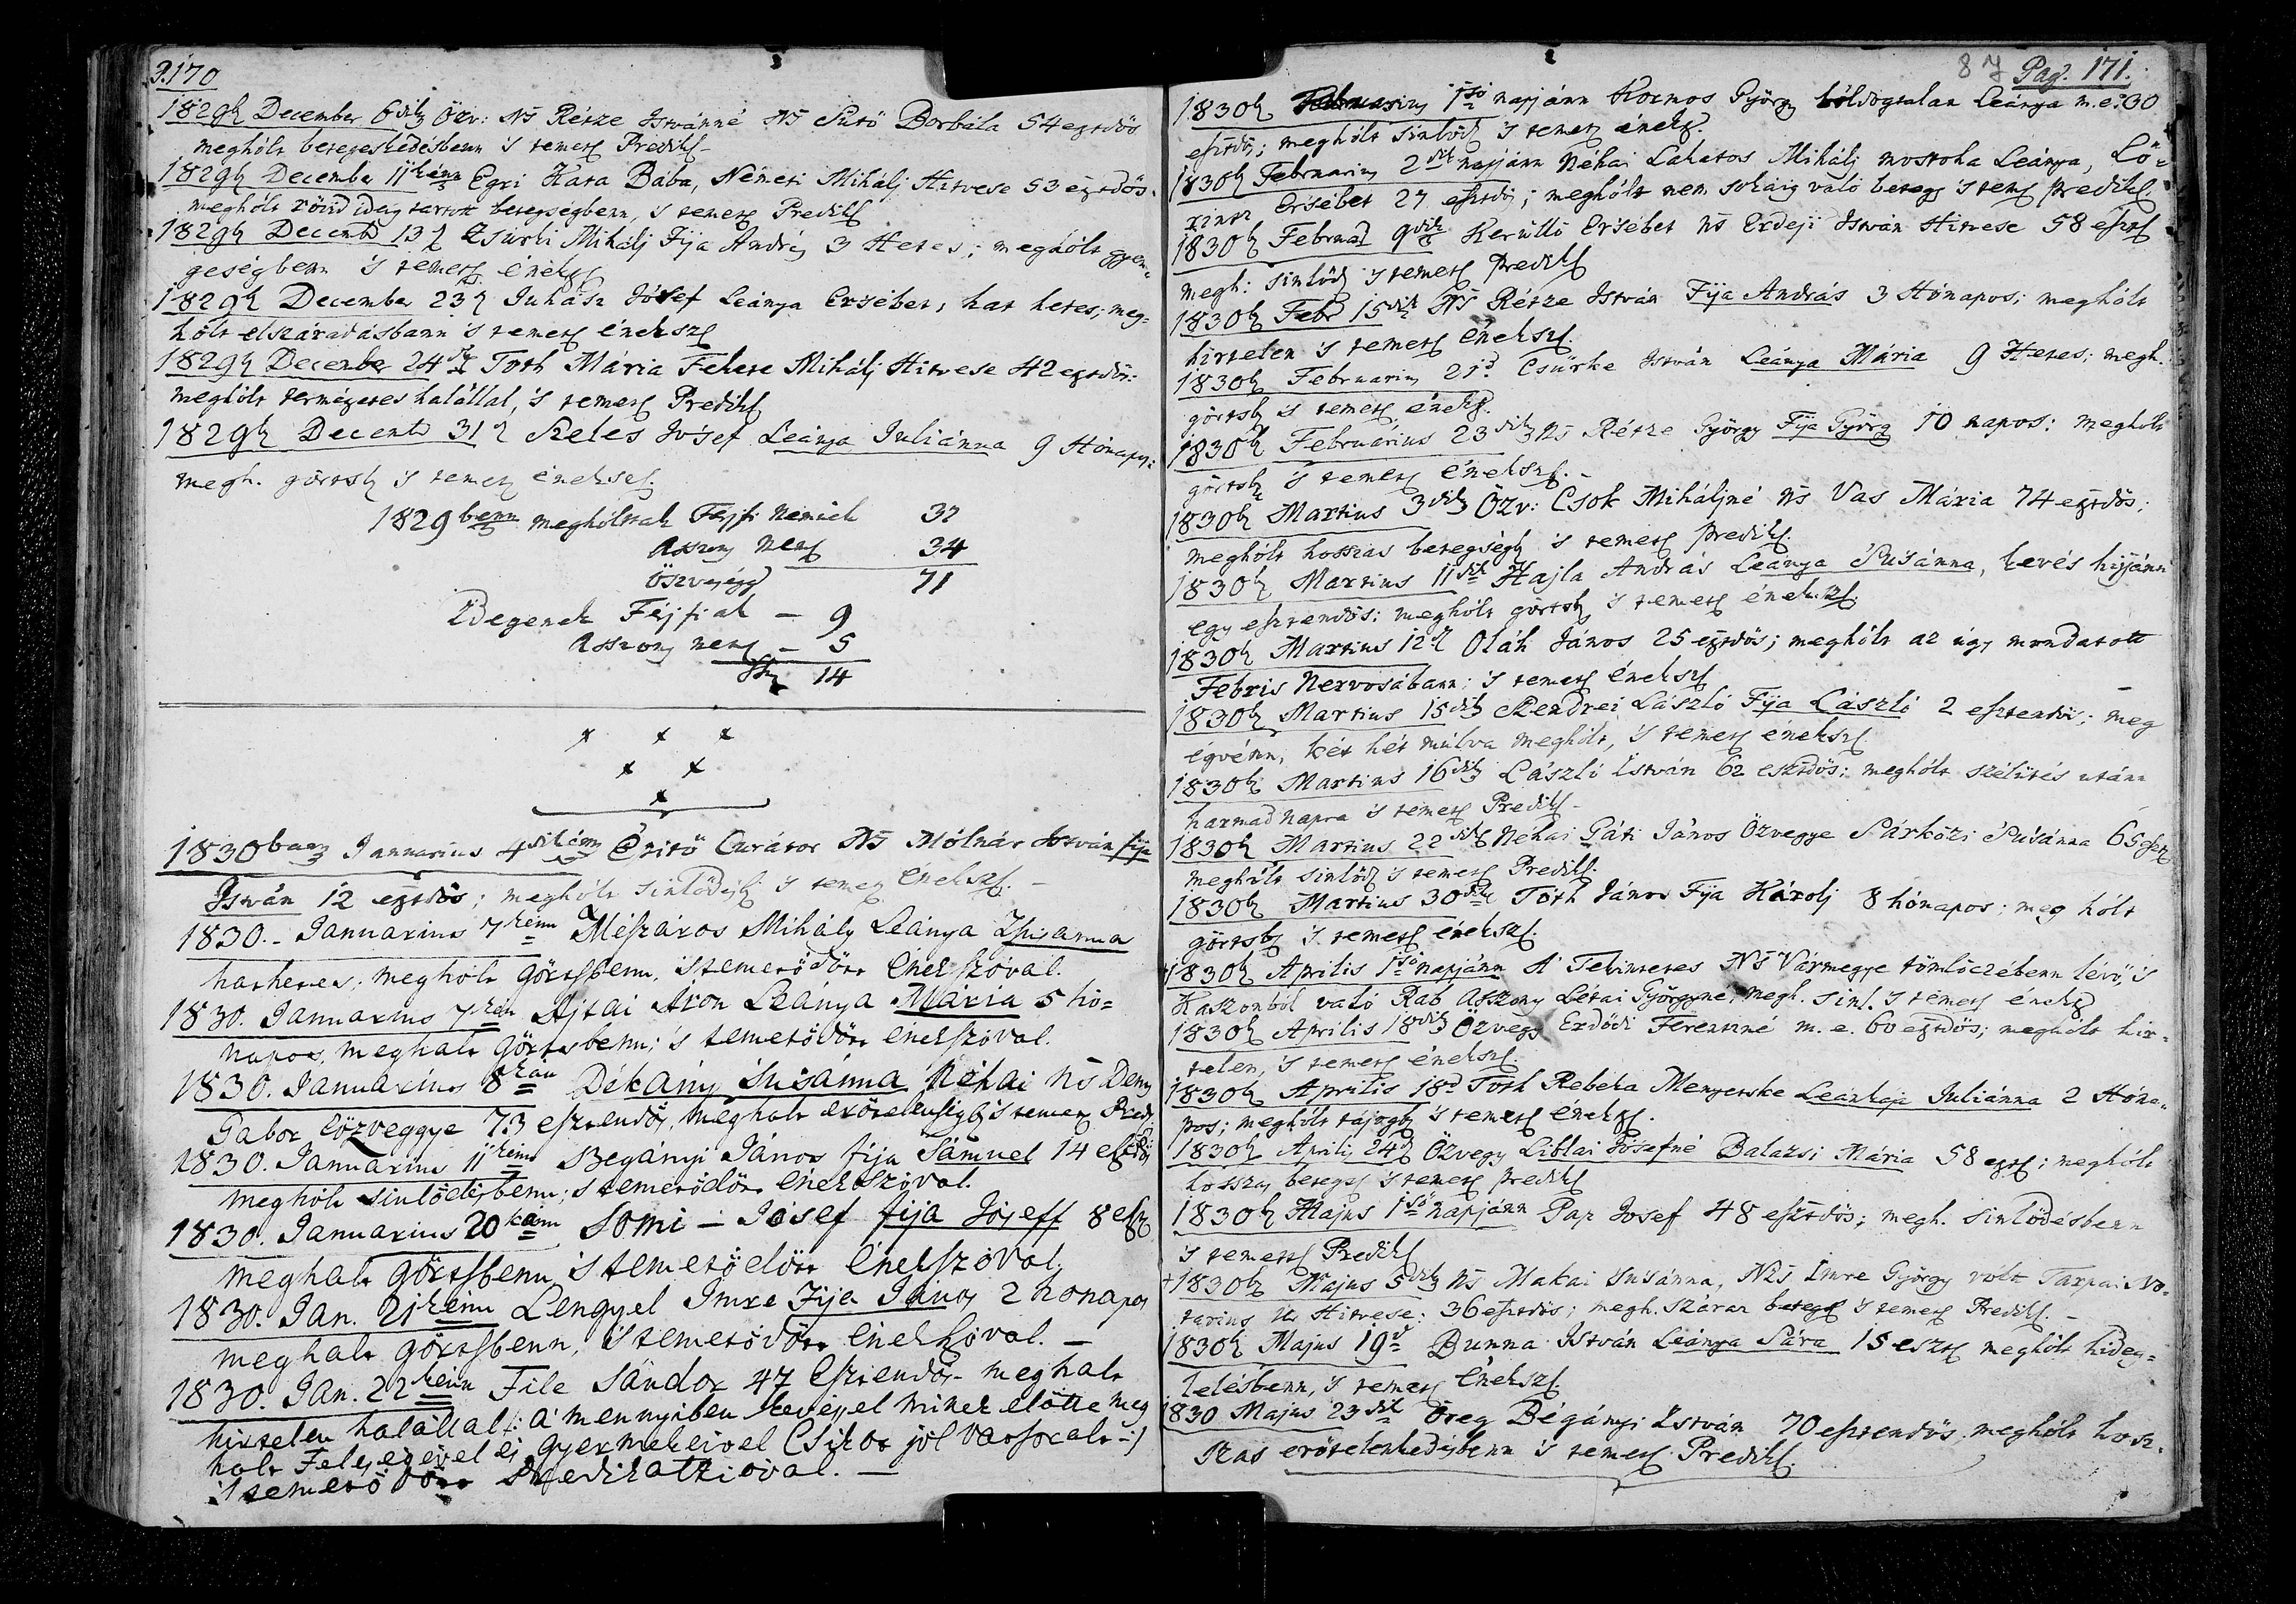 P.170
1829b December 6dik Özv: Ns Rétze Istvánné Ns Sütö Borbála 54 esztdös
meghólt betegeskedésbenn 's temett Predik
1829b December 11kénn Egri Kata Bába, Németi Mihálj Hitvese 53 esztdös.
meghólt rövid ideig tartott betegségbenn, 's temett Predik
1829b Decemb 13d Zsurki Mihálj Fija András 3 Hetes; meghólt gyen=
geségbenn 's temett éneksz
1829b December 23d Juhász Jósef Leánya Ersébet, hat hetes; meg=
hólt elszáradásbann 's temett éneksz
1829b December 24dik Toth Mária Fekete Mihálj Hitvese 42 esztdös:
meghólt természetes halállal, 's temett Predik
1829b Decemb 31d Szeles Jósef Leánya Juliánna 9 Hónapos:
megh. görtsb 's temett éneksz.
1829benn meghóltak Férjfi nemüek 37
Asszony nem 34
öszveségg 71
Idegenek Férjfiak — 9
Asszony nem — 5
14
x x x
x x
x
1830bann Januarius 4dikénn Épitö Curátor Ns Mólnár István fija
István 12 esztdös; meghólt sinlödésb 's temett éneksz. —
1830. Januarius 7kénn Mészáros Mihály Leánya Zsuzsanna
hathetes; meghólt görtsbenn, 's temetödött énekszóval.
1830. Januarius 7kén Ajtai Áron Leánya Mária 5 hó=
napos, meghalt görtsbenn; 's temetödött énekszóval.
1830. Januarius 8kán Dékány Susánna Néhai Ns Deny
Gábor özveggye 73 esztendös, meghalt erötelenségb 's temett Predik
1830. Januarius 11kénn Begányi János fija Sámuel 14 esztdös
meghólt sinlödésbenn; 's temetödött énekszóval.
1830. Januarius 20kánn Somi — Jósef fija Jóseff 8 esz
meghalt görtsbenn 's temetödött énekszóval.
1830. Jan. 21kénn Lengyel Imre Fija János 2 hónapos
meghalt görtsbenn, 's temetödött énekszóval. —
1830. Jan. 22kénn File Sándor 47 esztendös — meghalt
hirtelen halállal /: a' mennyiben kevéssel minek elötte meg
halt Feleségével és gyermekeivel Csikor jól vatsorált :/
's temetödött Predikátzióval. —
87 Pag. 171.
1830b Februarius 1sö napjánn Kormos György bóldogtalan Leánya m.e. 30
esztdös; meghólt sinlöd 's temett éneksz.
1830b Februarius 2dik napjánn Néhai Lakatos Mihálj mostoha Leánya, Lö=
rintz Ersébet 27 esztdös; meghólt nem sokáig való beteg 's tem predik
1830b Februar 9dik Kerülló Ersébet Ns Erdeji István Hitvese 58 eszt
megh: sinlöd 's temett predik
1830b Febr 15dik Ns Rétze István Fija András 3 Hónapos; meghólt
hirtelen 's temett éneksz.
1830b Februarius 21d Csürke István Leánya Mária 9 Hetes; megh.
görtsb 's temett éneksz.
1830b Február­ius 23dik Ns Rétze György Fija György 10 napos: meghólt
görtsb 's temett éneksz. —
1830b Martius 3dik Özv: Csok Miháljné Ns Vas Mária 74 esztdös;
meghólt hosszas betegségb 's temett predik.
1830b Martius 11dik Hajla András Leánya Susánna, kevés hijjánn
egy esztendös; meghólt görtsb 's temett éneksz.
1830b Martius 12d Oláh János 25 esztdös; meghólt az úgy mondatott
Febris Nervosábann; 's temett éneksz
1830b Martius 15dik Szendrei László Fija László 2 esztendös; meg
égvénn, két hét múlva meghólt, 's temett éneksz
1830b Martius 16dik László István 62 esztdös; meghólt szélütés utánn
harmad napra 's temett Predik —
1830b Martius 22dik Néhai Páti János Özvegye Sárközi Susánna 65 esz
meghólt sinlöd 's temett Predik.
1830b Martius 30dik Tóth János Fija Károlj 8 hónapos; meg hólt
görtsb 's temett éneksz.
+1830b Aprilis 1sö napjánn A' Tekintetes Ns Vármegye tömlöczébenn lévö, 's
Kaszonból való Rab Asszony Létai Györgyné, megh. sinl. 's temett éneksz
1830b Aprilis 18dik Özvegy Erdödi Ferentzné m. e. 60 esztdös; meghólt hir=
telen, 's temett éneksz.
1830b Aprilis 18d Toth Rebeka Menyetske Leánkája Juliánna 2 Hóna=
pos; meghólt 's temett éneksz.
1830b Aprilis 24d Özvegy Liblai Jósefné Balazsi Mária 58 eszt; meghólt
hosszas beteges 's temett predik
1830b Május 1sö napjánn Pap Josef 48 esztdös; megh. sinlödésbenn
's temett Predik
+1830b Május 5dik Ns Makai Susánna, Nzs Imre György volt Tarpai No=
tarius Ur Hitvese; 36 esztdös; megh. száraz beteg 's temett Predik. —
1830b Majus 19d Bunna István Leánya Sára 15 eszt meghólt hideg=
lelésbenn, 's temett éneksz
1830 Majus 23dik Öreg Bégányi István 70 esztendös, meghólt hosz=
szas erötelenkedésbenn 's temett Predik.